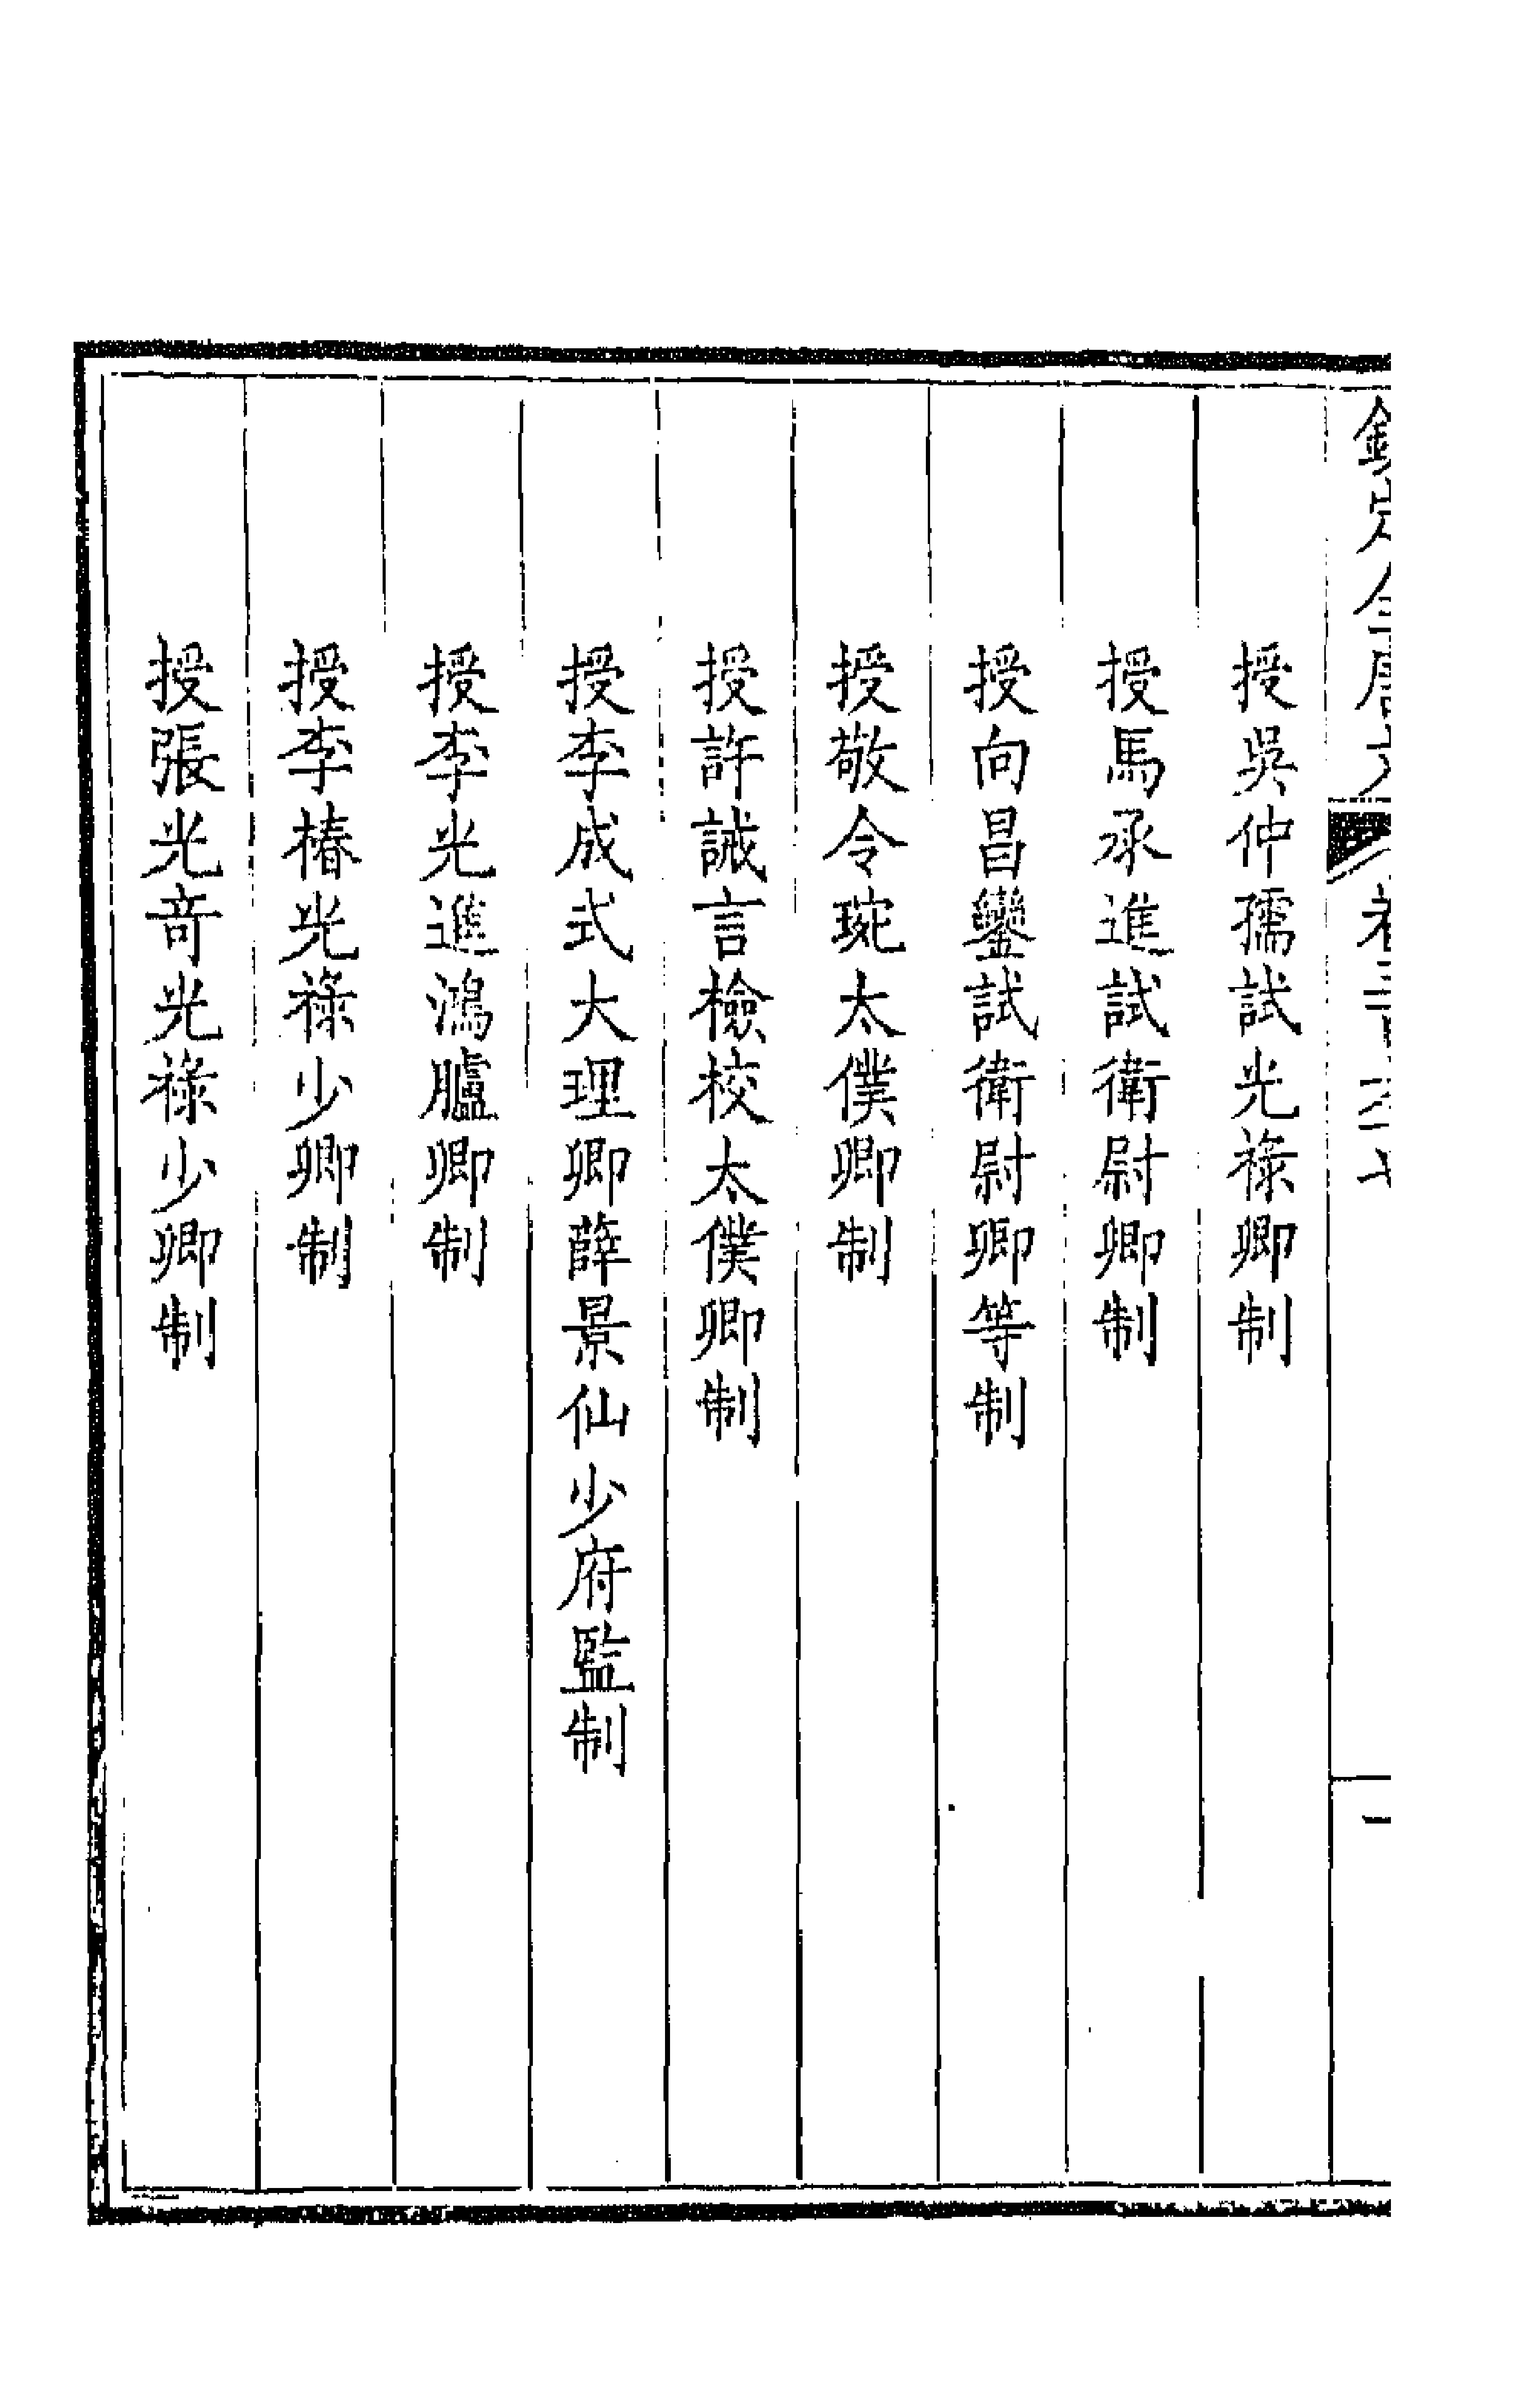 欽定全唐文
卷三百六十七
一
授吳仲孺試光祿卿制
授馬承進試衛尉卿制
授向昌鑾試衛尉卿等制
授敬令琬太僕卿制
授許誡言檢校太僕卿制
授李成式大理卿薛景仙少府監制
授李光進鴻臚卿制
授李椿光祿少卿制
授張光奇光祿少卿制